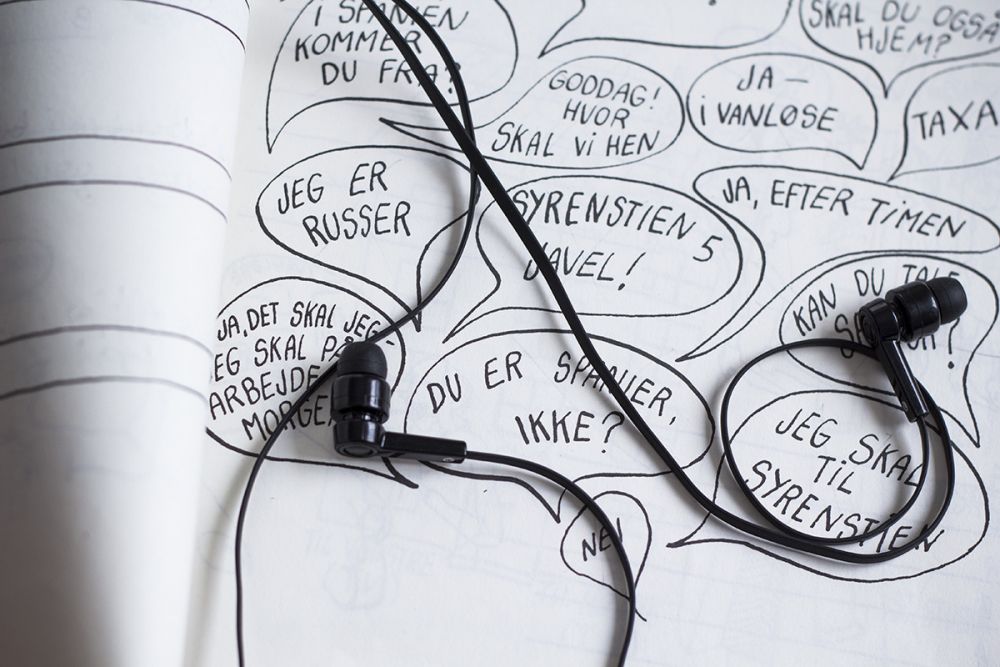 I SPANIEN
KOMMER
DU FRA?
SKAL DU OGSÅ
HJEM?
GODDAG!
HVOR
SKAL Vi HEN
JA –
i VANLØSE
TAXA
JEG ER
RUSSER
SYRENSTIEN 5
JAVEL!
JA, EFTER TiMEN
KAN DU
JA, DET SKAL JEG-
JEG SKAL PÅ
ARBEJDE
MORGEN
DU ER SPANIER,
IKKE?
JEG SKAL
TiL
SYRENSTIEN
NEJ